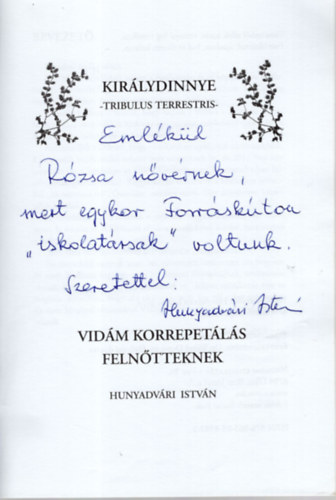 KIRÁLYDINNYE
-TRIBULUS TERRESTRIS-
Emlékül
Rózsa nővérnek,
mert egykor Forráskúton
„iskolatársak" voltunk.
Szeretettel:
Hunyadvári István
VIDÁM KORREPETÁLÁS
FELNŐTTEKNEK
HUNYADVÁRI ISTVÁN